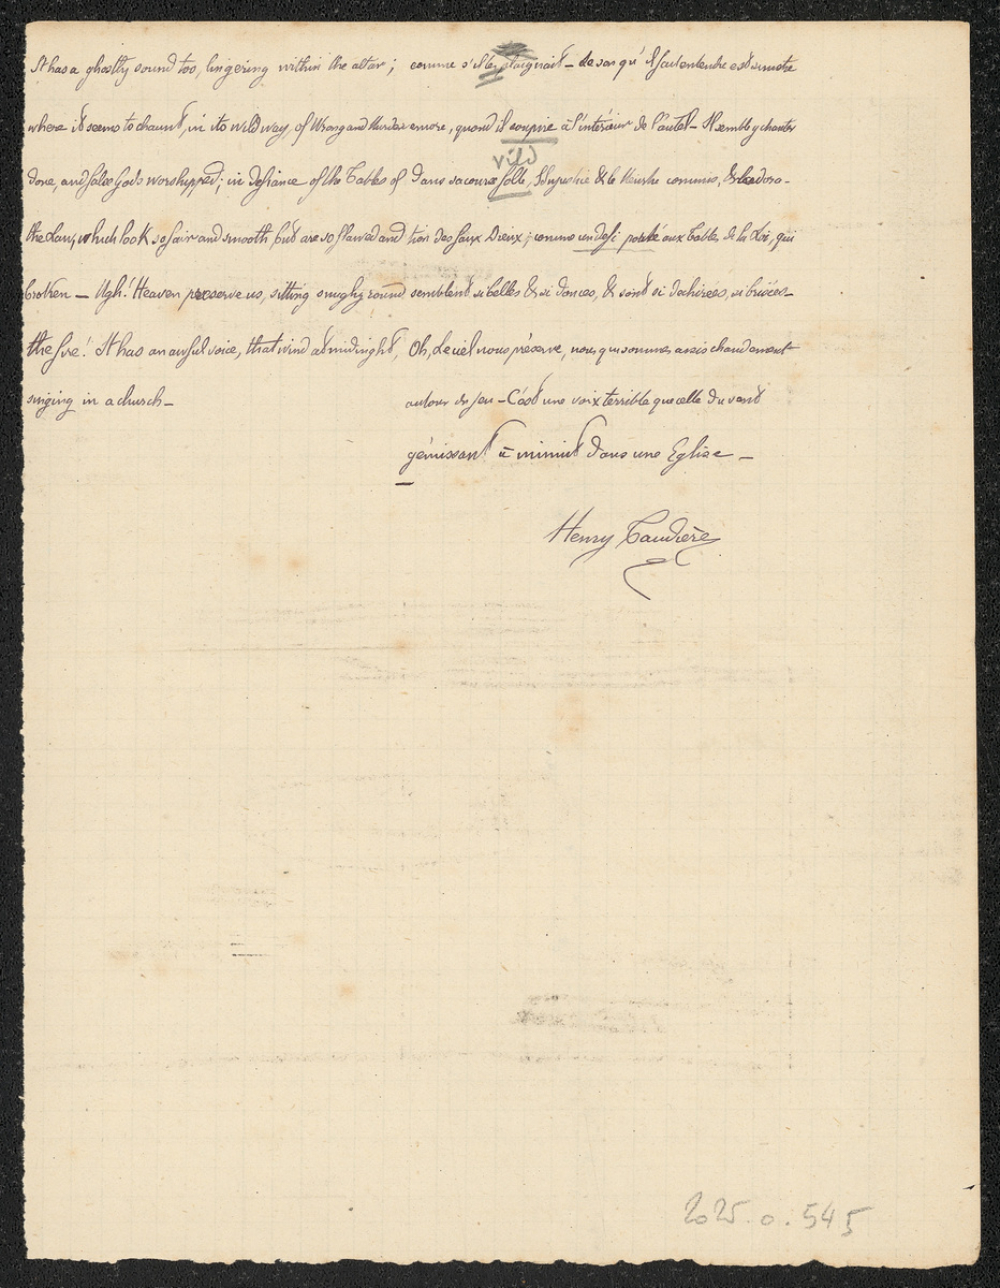 It has a ghostly sound too, lingering within the altar;
where it seems to chaunt, in its wild way, of Wrong and Murder
done, and false Gods worshipped; in defiance of the Tables of
the Law, which look so fair and smooth, but are so flawed and
broken — Ugh! Heaven preserve us, sitting snugly round
the fire! It has an awful voice, that wind at midnight,
singing in a church —
comme s'il se plaignait — le son qu'il fait entendre est sinistre
encore, quand il soupire à l'intérieur de l'autel — Il semble y chanter
vild
dans sa course folle, l'Injustice & le Meurtre commis, & l'adora-
tion des faux Dieux; comme un défi porté aux Tables de la Loi, qui
semblent si belles & si douces, & sont si déchirées, si brisées —
Oh, le ciel nous préserve, nous qui sommes assis chaudement
autour du feu — C'est une voix terrible que celle du vent
gémissant à minuit dans une Eglise —
Henry Taudière
2025.0.545